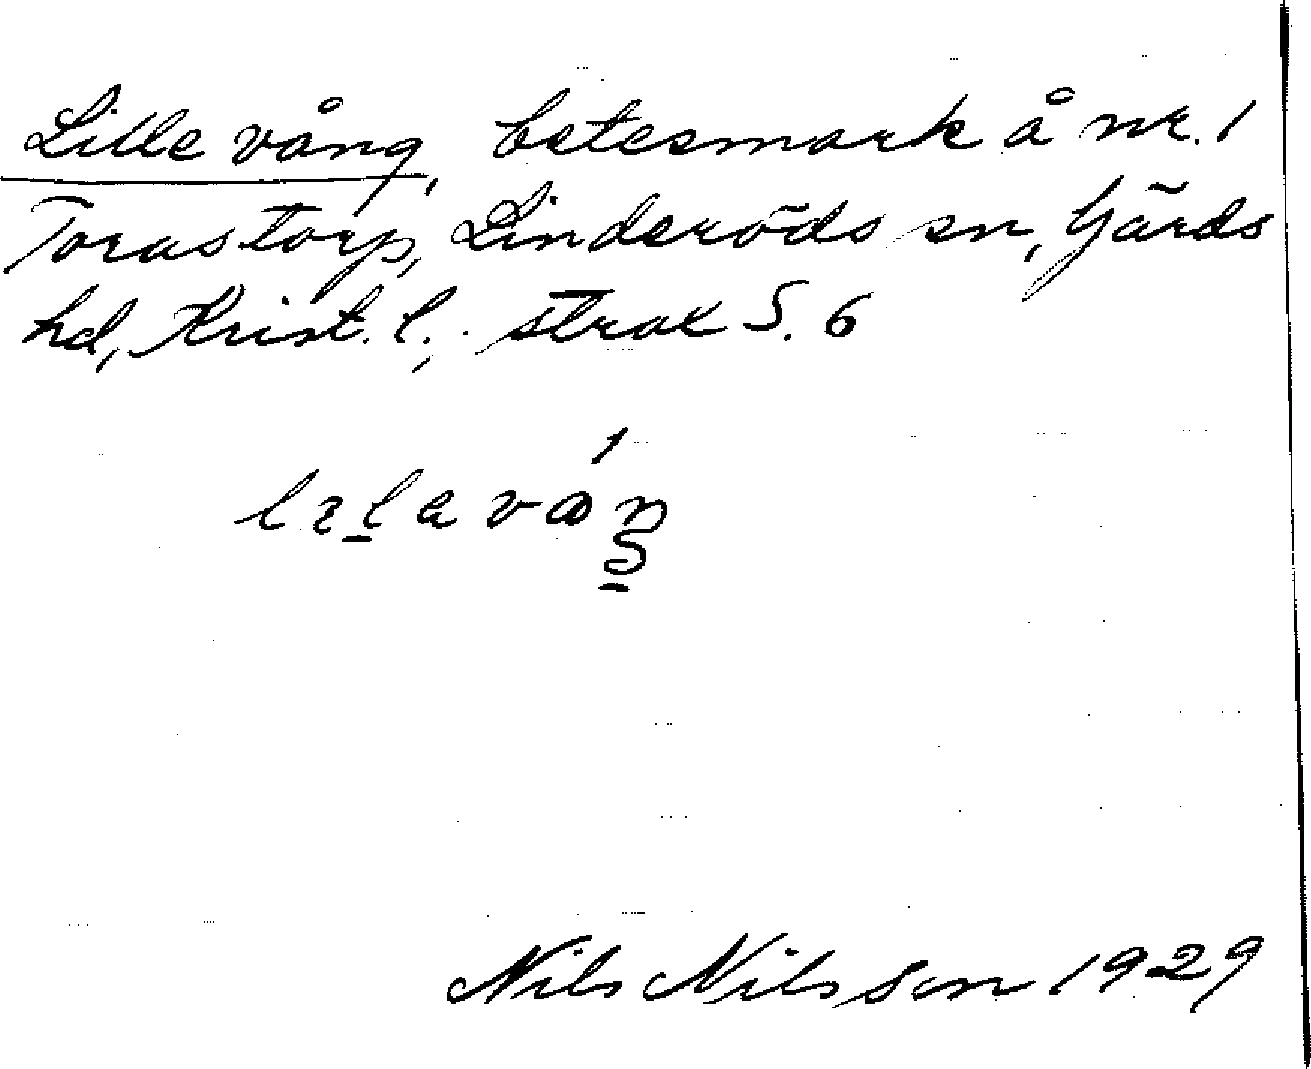 Lille vång, betesmark å nr. 1
Torastorp, Linderöds sn, Gärds
hd, Krist. l.; strax S. 6
Nils Nilsson 1929